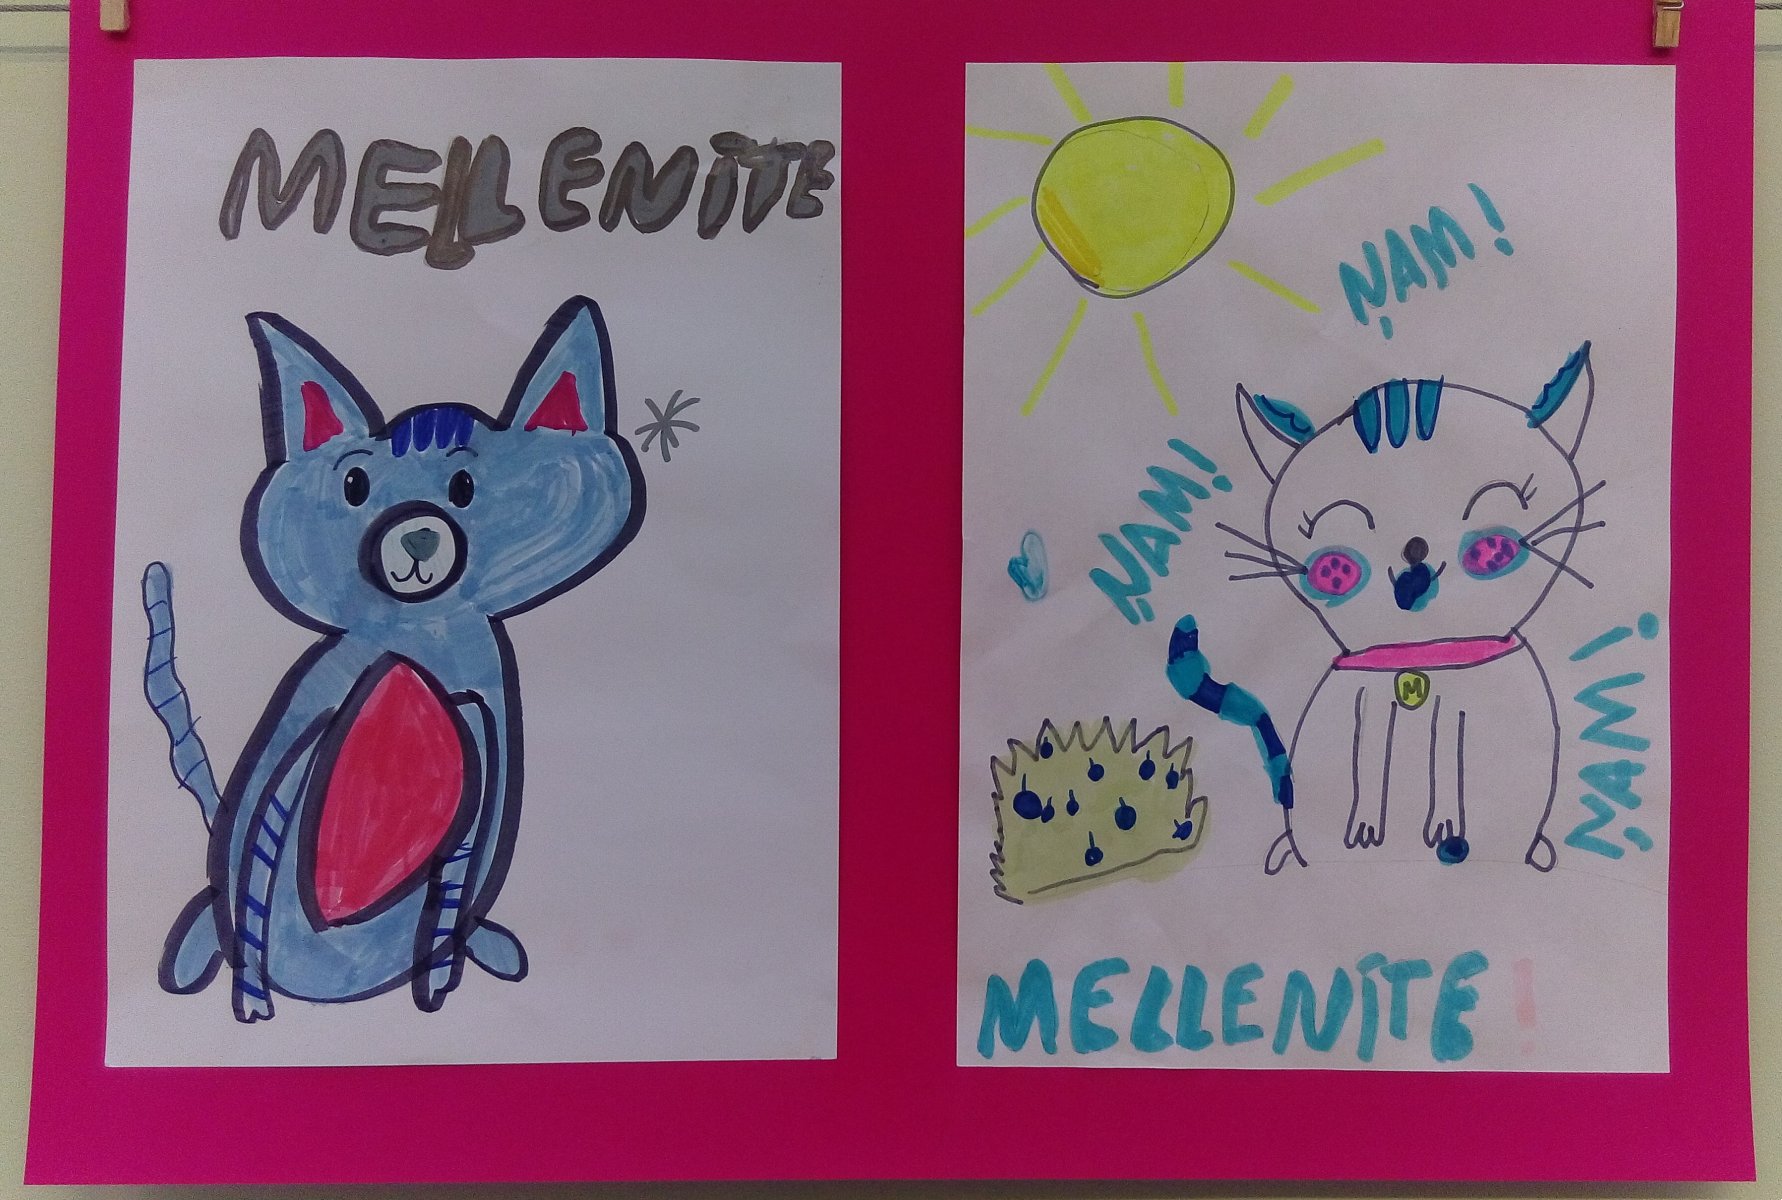 MELLENĪTE
ŅAM!
ŅAM!
ŅAM!
M
MELLENĪTE!